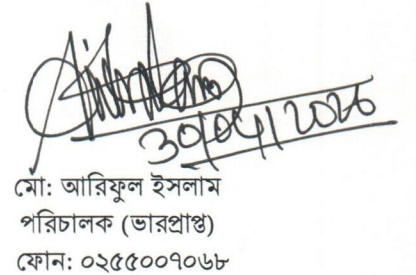 মো: আরিফুল ইসলাম
পরিচালক (ভারপ্রাপ্ত)
ফোন: ০২৫৫০০৭০৬৮